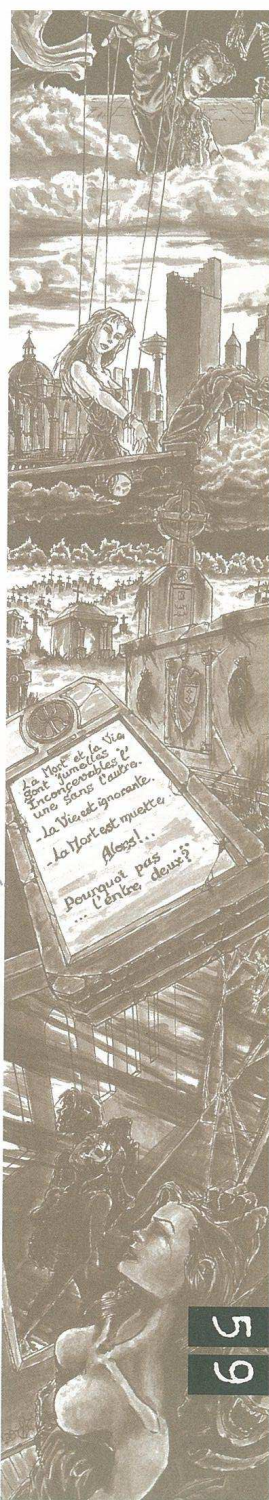 La Mort et la Vie
sont jumelles
Inconcevables l'
une sans l'autre.
La Vie est ignorante.
La Mort est muette
Alors!..
Pourquoi pas ...
... l'entre deux?
59